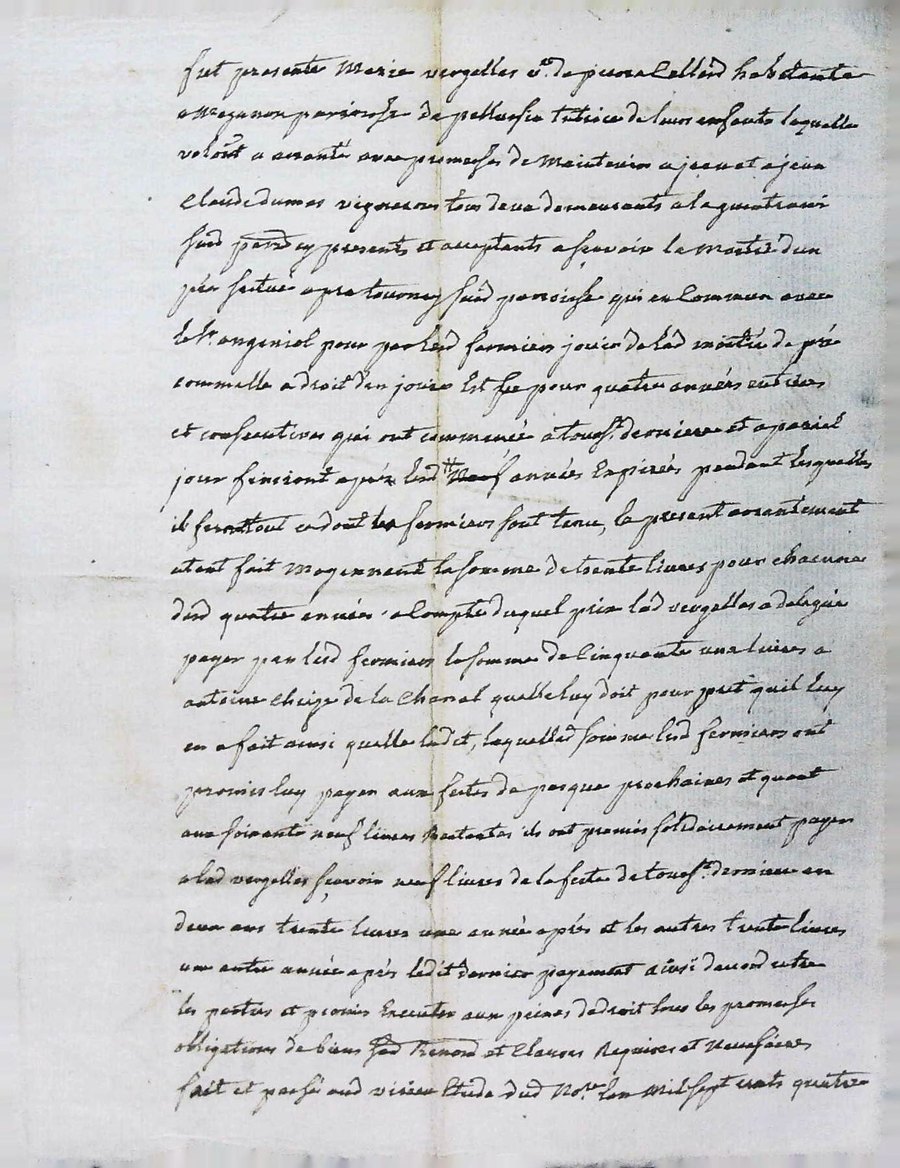 fut presente Marie vergelles v.e de pierre Cellerd habitante
parroisse de pellussin tutrice de leurs enfants laquelle
volonté a arranté avec promesses de Maintenir a jean et a jean
Claude dumas vignerons tous deux demeurants a la
susd parr. cy presents et acceptants a scavoir la Moitié d'un
pré scitué a pretourney susd parroisse qui en Commun avec
le Sr. angeniol pour par lesd fermiers jouir de lad moitié de pré
comme elle a droit d'en jouir Est ce pour quatre années entiers
et consecutives qui ont commencé a touss.t derniere et a pareil
jour finiront aprés lesd neuf années Expirés pendant lesquelles
il feront tout ce dont les fermiers sont tenu, le present arrantement
etant fait Moyennant la somme de trente livres pour chacune
desd quatre années a Compte duquel prix lad vergelles a delegué
payer par lesd fermiers la somme de Cinquante une livres a
antoine Cheize de la Chanal quelle luy doit pour pret quil luy
en a fait ainsi quelle ledit, laquelle somme lesd fermiers ont
promis luy payer aux festes de pasque prochaines et quant
aux soixante neuf livres Restantes ils ont promis solidairement payer
a lad vergelles scavoir neuf livres de la feste de touss.t derniere en
deux ans trente livres une année aprés et les autres trente livres
une autre année aprés ledit dernier payement ainsi daccord entre
les parties et promis Executer aux peines de droit sous les promesses
obligations de biens sud Renond et Clauses Requises et necessaires
fait et passé aud Etude dud No.re lan Mil sept cents quatre